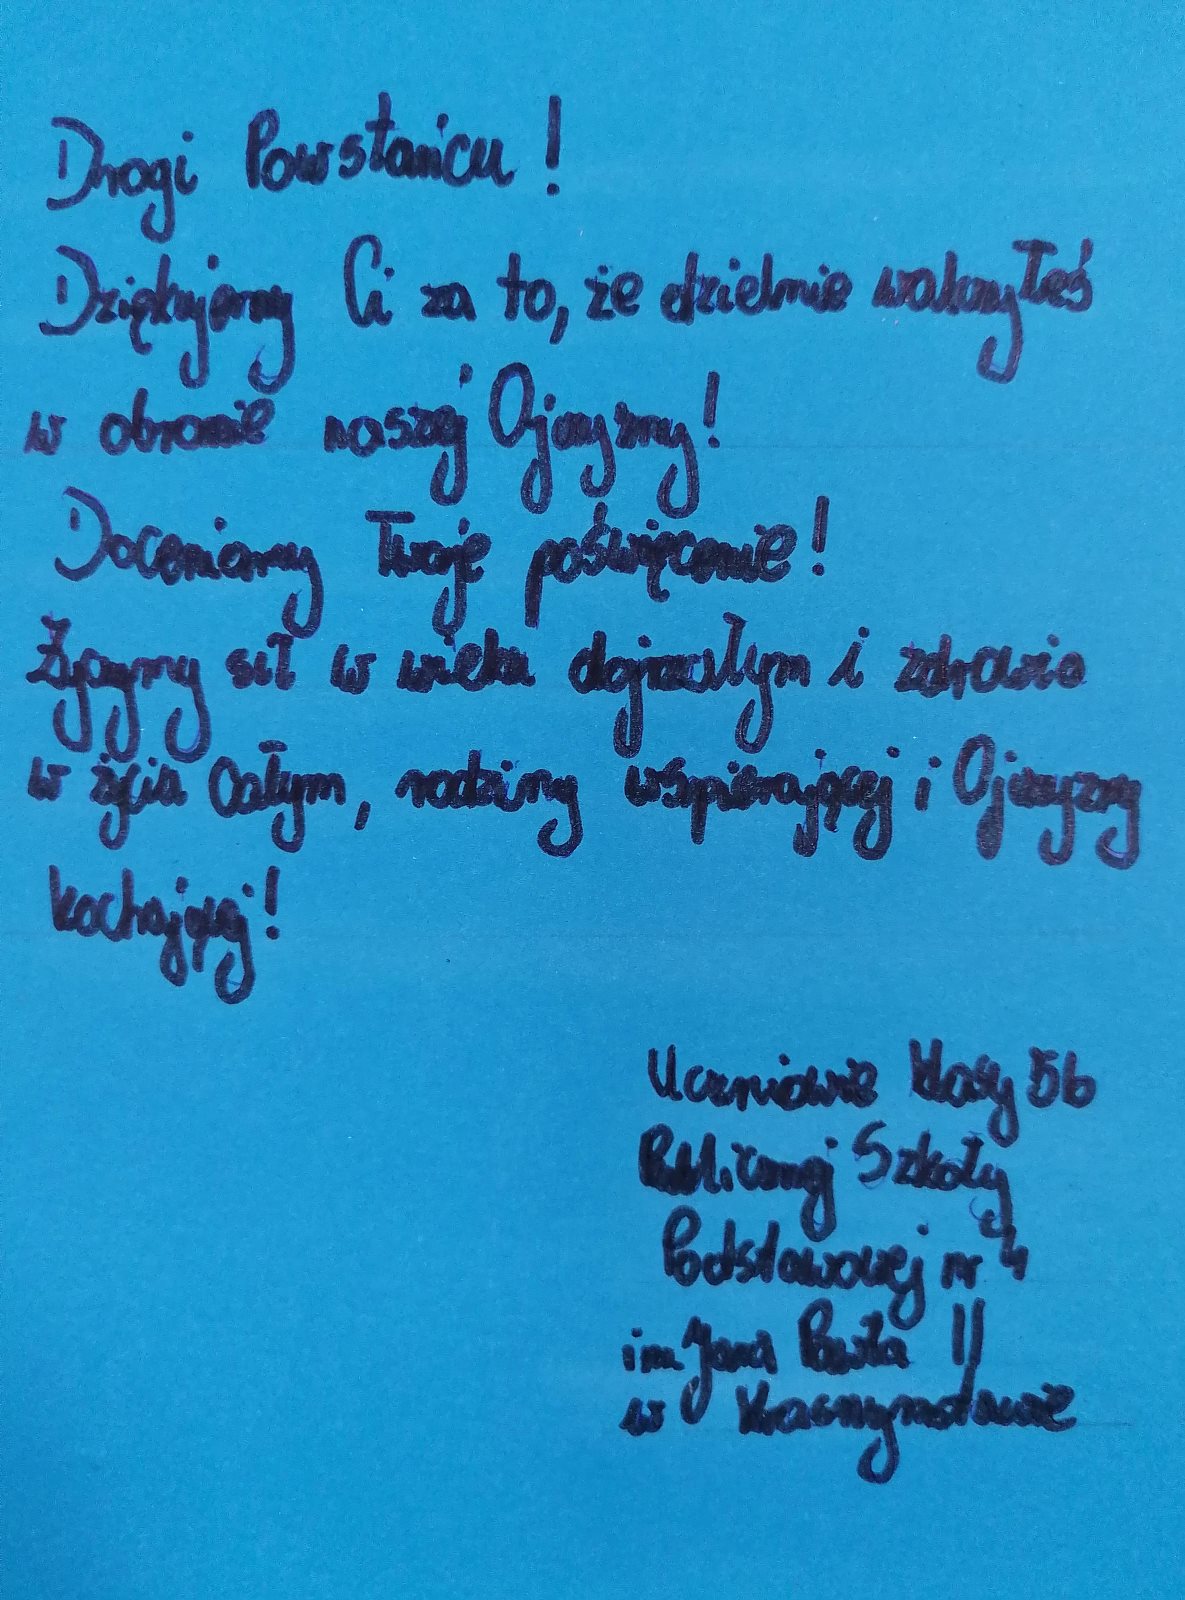 Drogi Powstańcu!
Dziękujemy Ci za to, że dzielnie walczyłeś
w obronie naszej Ojczyzny!
Doceniamy Twoje poświęcenie!
Życzymy sił w wieku dojrzałym i zdrowia
w życiu całym, rodziny wspierającej i Ojczyzny
kochającej!
Uczniowie klasy 5b
Publicznej Szkoły
Podstawowej nr 4
im. Jana Pawła II
w Krasnymstawie